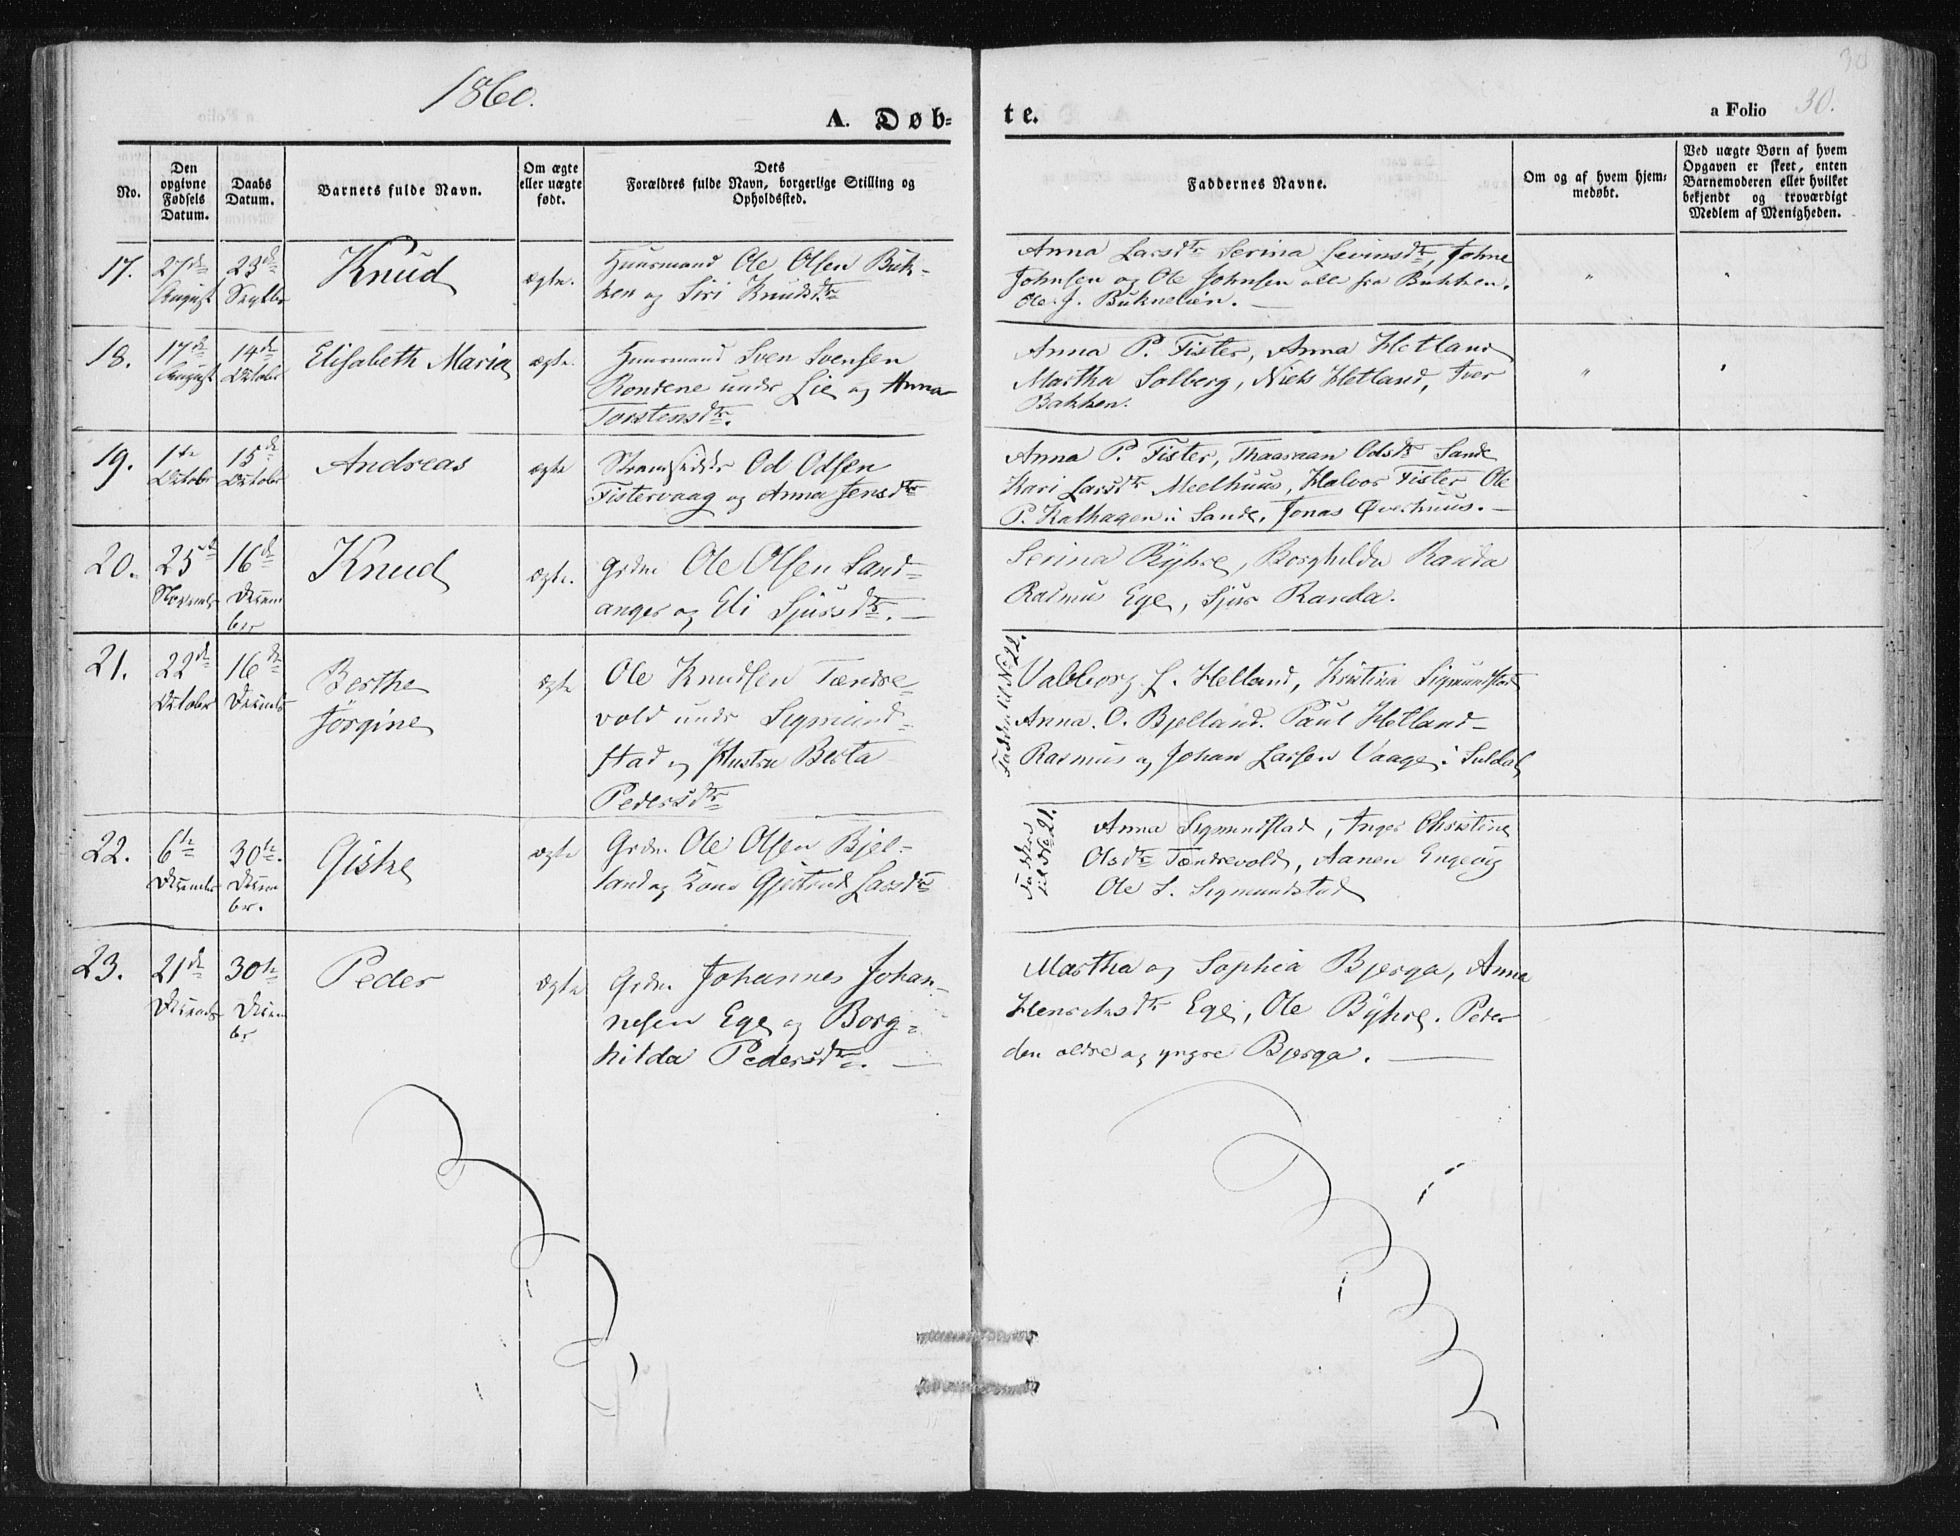 1860.
30
A. Døb-
te.
a Folio 30.
No.
Den opgivne Fødsels Datum.
Daabs Datum.
Barnets fulde Navn.
Om ægte eller uægte født.
Dets Forældres fulde Navn, borgerlige Stilling og Opholdssted.
Faddernes Navne.
Om og af hvem hjemmedøbt.
Ved uægte Børn af hvem Opgaven er skeet, enten Barnemoderen eller hvilket bekjendt og troværdigt Medlem af Menigheden.
17.
27de August
23de Septbr
Knud
ægte.
Huusmand Ole Olsen Buk-
ken og Siri Knudsdtr
Anna Larsdtr Serina Levinsdtr, Johne
Johnsen og Ole Johnsen alle fra Bukken.
Ole J. Buknelien.
18.
17de August
14de October
Elisabeth Maria
ægte.
Huusmand Sven Svensen
Rondene under Lie og Anna
Torstensdtr.
Anna P. Fister, Anna Hetland
Martha Solberg, Niels Hetland, Iver
Bakken.
19.
1ste October
15de October
Andreas
ægte
Strandsidder Od Odsen
Fistervaag og Anna Jensdtr
Anna P. Fister, Odsdtr Sande
Kari Larsdtr Meelhuus, Halvor Fister Ole
P. Kalhagen i Sande, Jonas Øverhuus.
20.
25de Novembr
16de Decem
ber
Knud
ægte.
Grdm. Ole Olsen Sand-
anger og Eli Sjursdtr.
Serina Byhre, Borghilda Randa
Rasmus Ege, Sjur Randa.
21.
22de October
16de Decembr
Berthe
Jørgine
ægte
Ole Knudsen Tændre-
vold under Sigmund-
stad og Hustru Berta
Pedersdtr
Faddere til No 22.
Valborg L. Helland, Kristina Sigmundstad
Anna. O. Bjelland. Paul Hetland
Rasmus og Johan Larsen Vaage i Suldal
22.
6te December
30te Decem
ber.
Giske
ægte
Grdm. Ole Olsen Bjel-
land og Kone Gjertrud Larsdtr
Faddere
til No 21.
Anna Sigmundstad, Inger Christine
Olsdtr Tændrevold, Aanen Engevig
Ole S. Sigmundstad
23.
21de Decembr
30te Decem
br
Peder
ægte
Grdm. Johannes Johan-
nesen Ege og Borg-
hilda Pedersdtr.
Martha og Sophia Bjerga, Anna
Henriksdtr Ege, Ole Byhre. Peder
den ældre og yngre Bjerga.